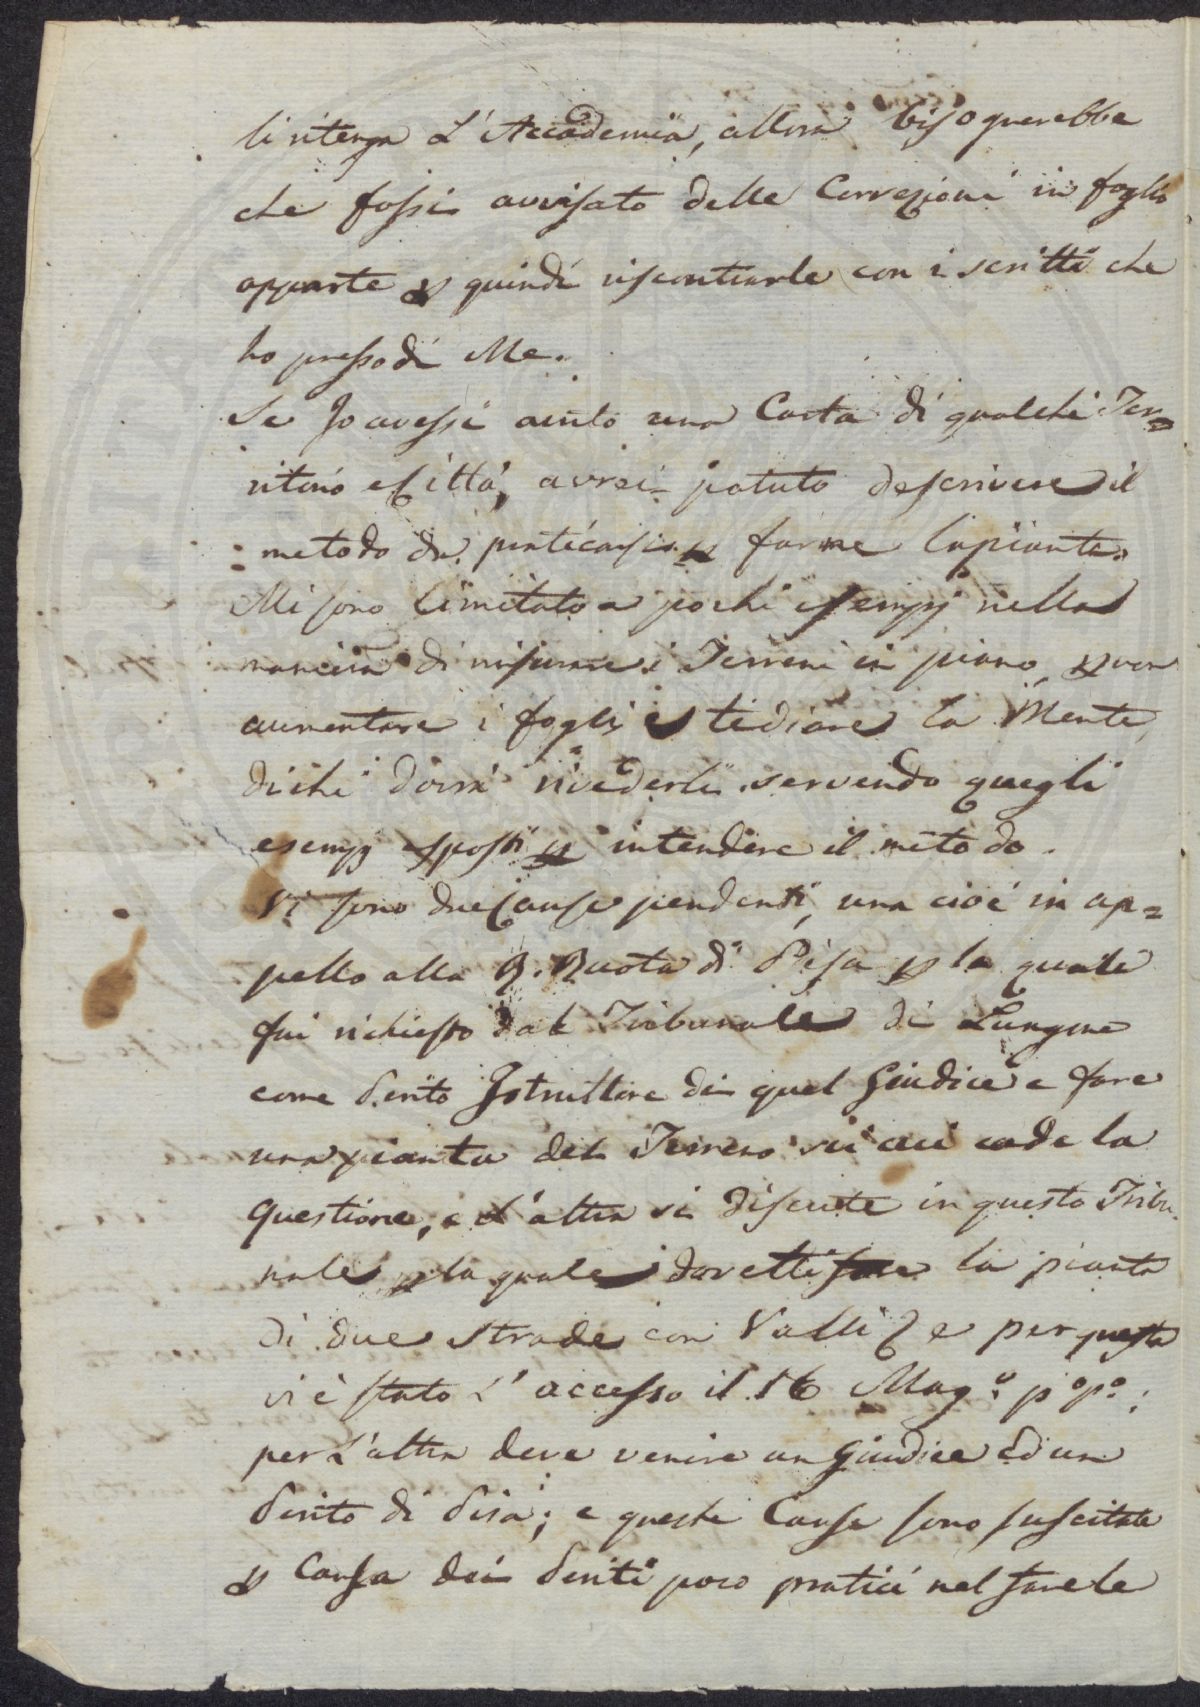 li ritenga L'Accademia, allora bisognerebbe
che fossi avvisato delle Correzioni in foglio
apparte p quindi riscontrarle con i scritti che
ho presso di Me.
Se Jo avessi auto una Carta di qualche Ter=
ritorio e Città, avrei potuto descrivere il
metodo da praticarsi p farne la pianta.
Mi sono limitato a pochi esempj nella
maniera di misurare i Terreni in piano, p non
aumentare i fogli e tediare la Mente
di chi dovrà rivederli servendo quegli
esempj esposti p intendere il metodo.
Vi sono due Cause pendenti, una cioè in ap=
pello alla R. Ruota di Pisa p la quale
fui richiesto dal Tribunale di Lungone
come Perito Istruttore di quel Giudice e fare
una pianta del Terreno su cui cade la
Questione, e L'altra si discute in questo Tribu
nale p la quale dovetti fare la pianta
di due strade con Valli, e per questa
vi è stato L'accesso il 16 Mag.o p.o p.o;
per L'altra deve venire un Giudice ed un
Perito di Pisa; e queste Cause sono suscitate
p Causa dei Periti poco pratici nel fare le